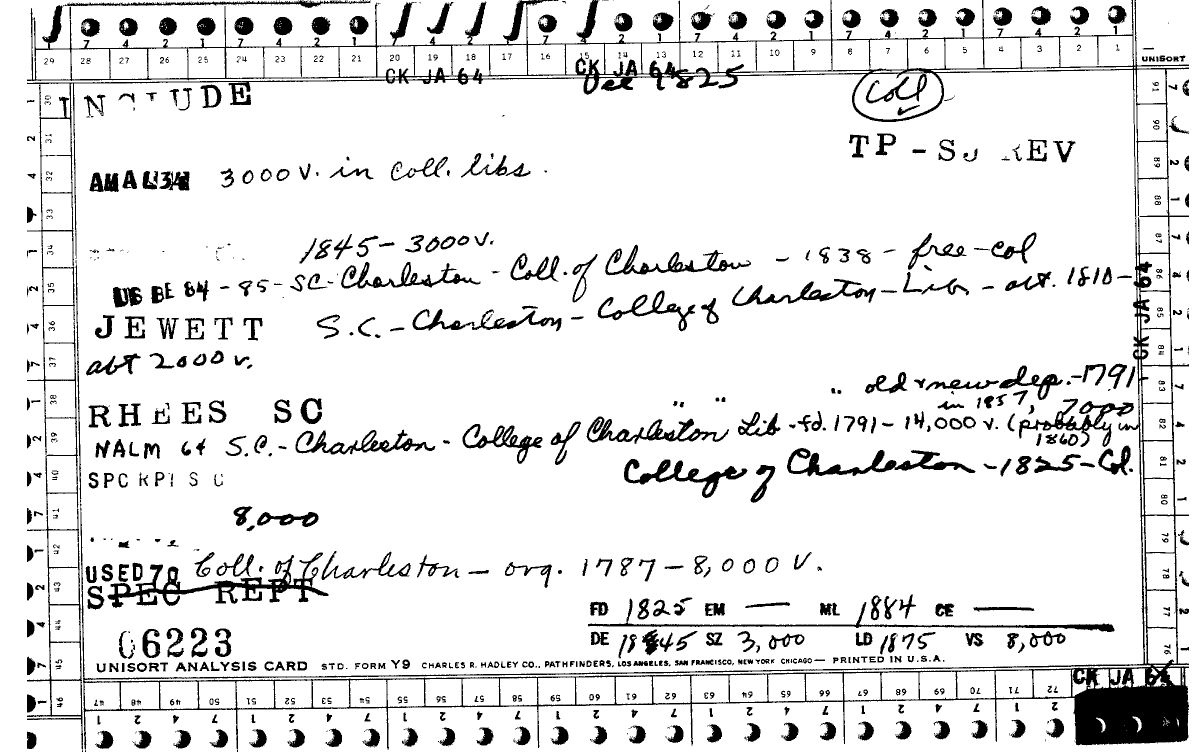 7 4 2 1 7 4 2 1 7 4 2 1 7 4 2 1 7 4 2 1 7 4 2 1 7 4 2 1
29 28 27 26 25 24 23 22 21 20 19 18 17 16 15 14 13 12 11 10 9 8 7 6 5 4 3 2 1
UNISORT
CK JA 64 CK JA 64
Dec 1825
INCLUDE
Coll
TP - SJ REV
3000 v. in Coll. libs.
1845 - 3000 v.
US BE 84 - 85 - SC - Charleston - Coll. of Charleston - 1838 - free - col
JEWETT S.C. - Charleston - College of Charleston - Lib - abt. 1810 -
abt 2000 v.
CK JA 64
" old & new dep. - 1791 -
RHEES SC " " in 1857, 7000
NALM 64 S.C. - Charleston - College of Charleston Lib - fd. 1791 - 14,000 v. (probably in 1860)
College of Charleston - 1825 - Col.
SPC RPT S C
8,000
USED 70 Coll. of Charleston - org. 1787 - 8,000 v.
SPEC REPT
FD 1825 EM — ML 1884 CE —
06223
DE 1845 SZ 3,000 LD 1875 VS 8,000
UNISORT ANALYSIS CARD STD. FORM Y9 CHARLES R. HADLEY CO., PATHFINDERS, LOS ANGELES, SAN FRANCISCO, NEW YORK CHICAGO — PRINTED IN U.S.A.
CK JA 64
47 48 49 50 51 52 53 54 55 56 57 58 59 60 61 62 63 64 65 66 67 68 69 70 71 72